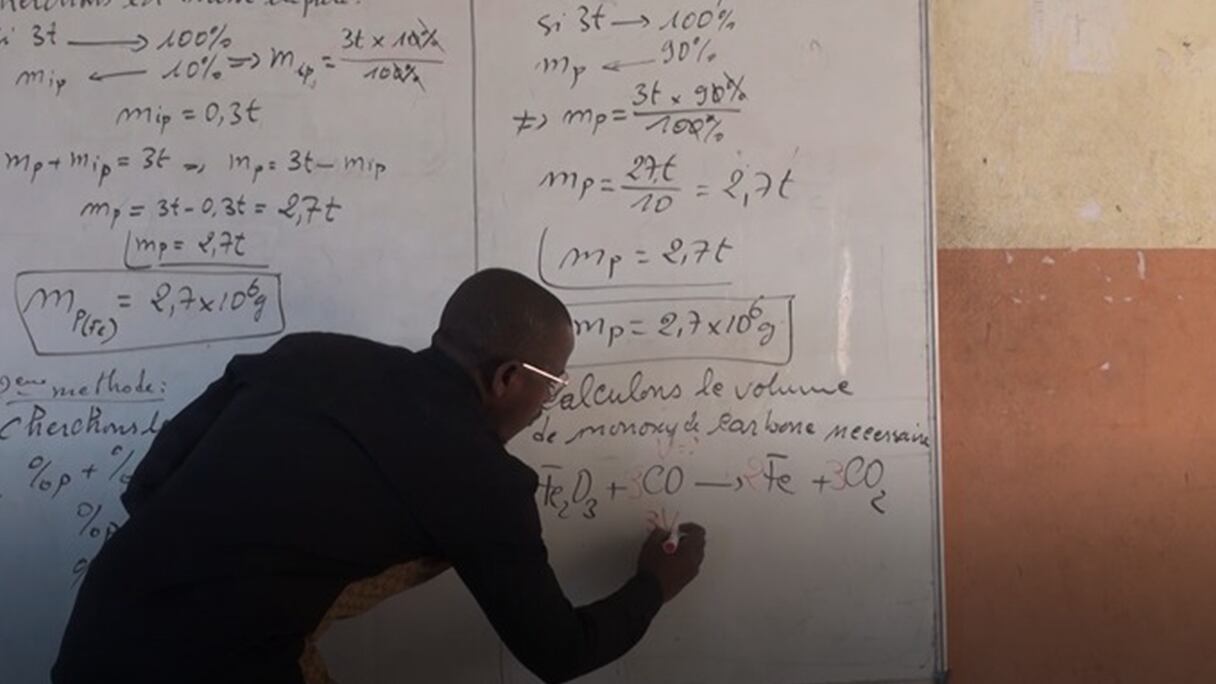 si 3t ⟶ 100%
mip ⟵ 10% => mip = 3t x 10% / 100%
mip = 0,3t
mp + mip = 3t => mp = 3t - mip
mp = 3t - 0,3t = 2,7t
mp = 2,7t
mp(Fe) = 2,7x10⁶g
2ème methode:
Cherchons
%p + %
%p
si 3t ⟶ 100%
mp ⟵ 90%
=> mp = 3t x 90% / 100%
mp = 27t / 10 = 2,7t
mp = 2,7t
mp = 2,7x10⁶g
Calculons le volume
de monoxyde carbone necessaire
V=?
Fe₂O₃ + 3CO ⟶ 2Fe + 3CO₂
3V